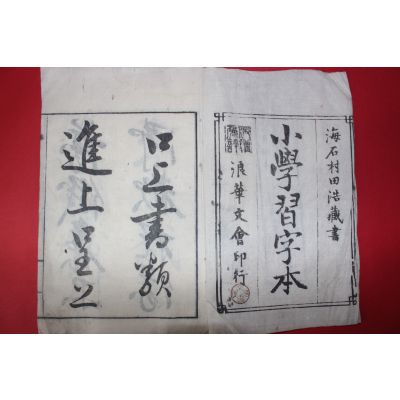 海石村田浩藏書
小學習字本
浪華文會印行
口上書類
進上呈上